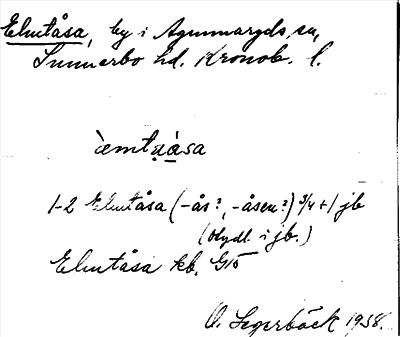 Elmtåsa, by i Agunnaryds sn,
Sunnerbo hd. Kronob. l.
1-2 Elmtåsa (-ås?, -åsen?) 3/4 + 1 jb
(otydl. i jb.)
Elmtåsa kb. G15
O. Segerbäck 1958.